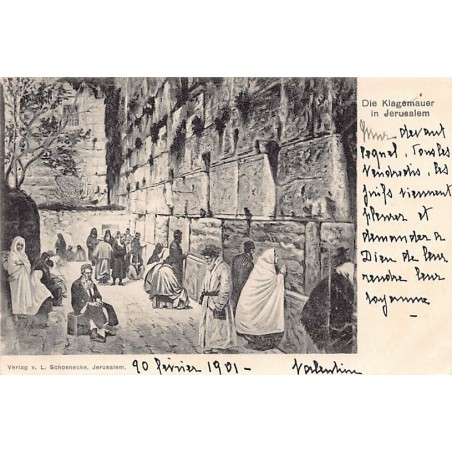 Die Klagemauer
in Jerusalem
Mur devant
lequel, tous les
Vendredis, les
juifs viennent
pleurer et
demander à
Dieu de leur
rendre leur
royaume
Verlag v. L. Schoenecke, Jerusalem.
20 février 1901 -
Valentine